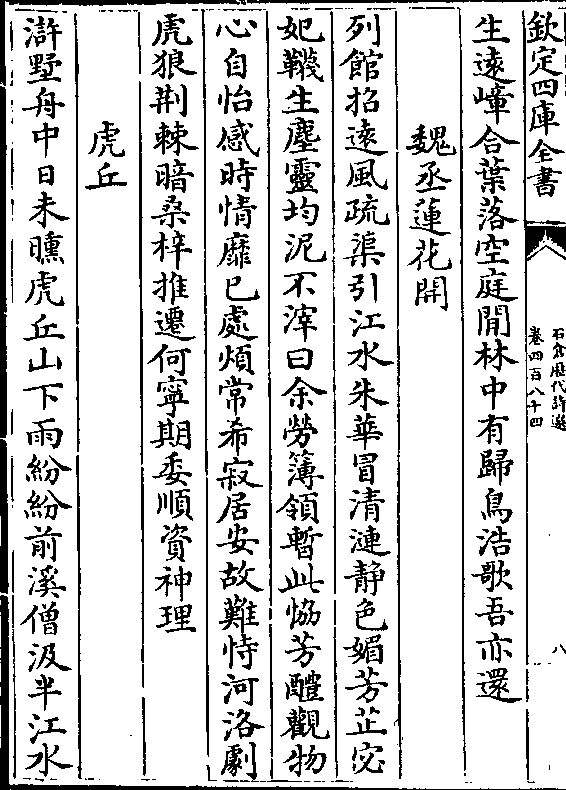 欽定四庫全書
石倉歴代詩選
卷四百八十四
八
生遠嶂合葉落空庭閒林中有歸鳥浩歌吾亦還
魏丞蓮花開
列館招遠風疏渠引江水朱華冒清漣静色媚芳芷宓
妃韈生塵靈均泥不滓曰余勞簿領暫此恊芳醴觀物
心自怡感時情靡已處煩常希寂居安故難恃河洛劇
虎狼荆棘暗桑梓推遷何寧期委順資神理
虎丘
滸墅舟中日未曛虎丘山下雨紛紛前溪僧汲半江水